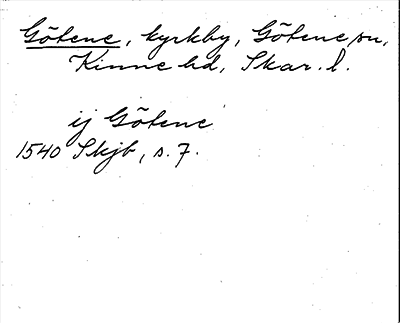 Götene, kyrkby, Götene sn,
Kinne hd, Skar. l.
ij Götene
1540 Skjb, s. 7.